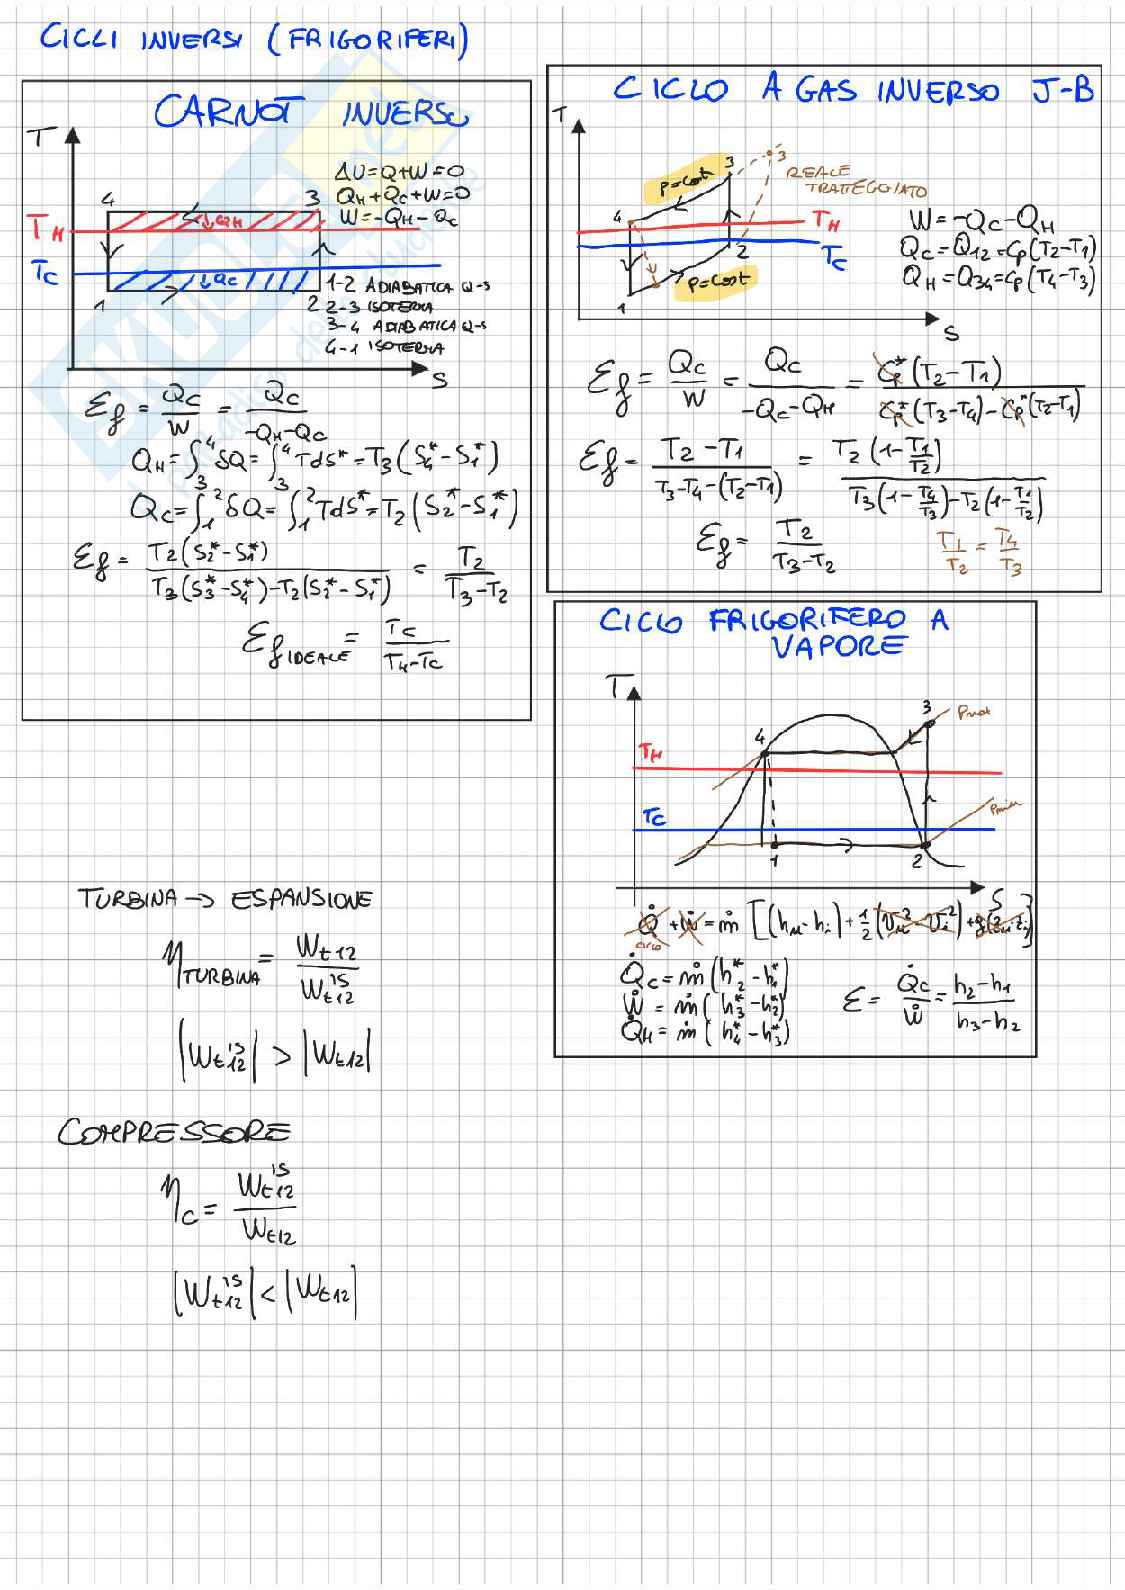 CICLI INVERSI (FRIGORIFERI)
CARNOT INVERSO
T
ΔU=Q+W=0
Q_H+Q_C+W=0
W=-Q_H-Q_C
4
3
T_H
↓Q_H
T_C
↓Q_C
1
2
1-2 ADIABATICA Q-S
2-3 ISOTERMA
3-4 ADIABATICA Q-S
4-1 ISOTERMA
S
ε_f = Q_C/W = Q_C/(-Q_H-Q_C)
Q_H=∫_3^4 δQ=∫_3^4 TdS*=T_3(S_4*-S_1*)
Q_C=∫_1^2 δQ=∫_1^2 TdS*=T_2(S_2*-S_1*)
ε_f = T_2(S_2*-S_1*)/(T_3(S_3*-S_4*)-T_2(S_2*-S_1*)) = T_2/(T_3-T_2)
ε_f IDEALE = T_C/(T_H-T_C)
CICLO A GAS INVERSO J-B
T
3
3
REALE
TRATTEGGIATO
P=cost
4
T_H
T_C
2
P=cost
1
S
W=-Q_C-Q_H
Q_C=Q_12=Cp(T_2-T_1)
Q_H=Q_34=Cp(T_4-T_3)
ε_f = Q_C/W = Q_C/(-Q_C-Q_H) = Cp*(T_2-T_1)/(Cp*(T_3-T_4)-Cp*(T_2-T_1))
ε_f = (T_2-T_1)/(T_3-T_4-(T_2-T_1)) = T_2(1-T_1/T_2)/(T_3(1-T_4/T_3)-T_2(1-T_1/T_2))
ε_f = T_2/(T_3-T_2)
T_1/T_2 = T_4/T_3
CICLO FRIGORIFERO A
VAPORE
T
3
4
T_H
T_C
1
2
S
Q̇ + Ẇ = ṁ[(h_u-h_i)+1/2(v_u²-v_i²)+g(z_u-z_i)]
Q̇_C=ṁ(h_2*-h_1*)
Ẇ=ṁ(h_3*-h_2*)
Q̇_H=ṁ(h_4*-h_3*)
ε = Q̇_C/Ẇ = (h_2-h_1)/(h_3-h_2)
TURBINA → ESPANSIONE
η_TURBINA = W_t12/W_t12^is
|W_t12^is| > |W_t12|
COMPRESSORE
η_C = W_t12^is/W_t12
|W_t12^is| < |W_t12|